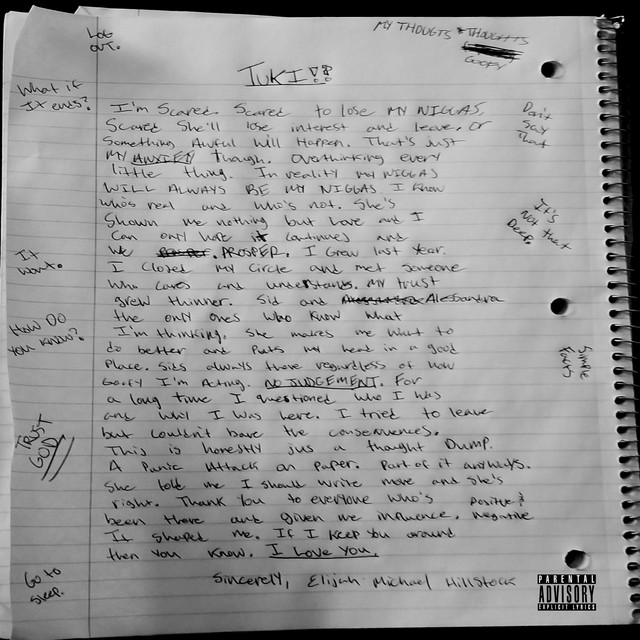 MY THOUGTS & THOUGHTS
GOOFY
LOG
OUT.
TUKI!?
What if
IT ends?
I'm Scared. Scared to lose MY NIGGAS,
Scared She'll lose interest and leave. Or
Something Awful Will Happen. That's Just
MY ANXIETY Though. Overthinking every
little thing. In reality MY NIGGAS
WILL ALWAYS BE MY NIGGAS I know
who's real and who's not. She's
Shown me nothing but love and I
Can only hope it continues and
We PROSPER. I Grew last year.
I Closed My Circle and met someone
who cares and understands. My trust
grew thinner. Sid and Alessandra
the only ones who know what
I'm thinking. She makes me want to
do better and puts my head in a good
Place. Sids always there regardless of how
Goofy I'm Acting. NO JUDGEMENT. For
a long time I questioned who I was
and why I was here. I tried to leave
but couldn't bare the consequences.
This is honestly jus a thought Dump.
A Panic Attack on Paper. Part of it anyways.
She told me I should write more and she's
right. Thank you to everyone who's
been there and given me influence.
It shaped me. If I keep you around
then you know. I Love You.
Sincerely, Elijah Michael Hillstock
Don't
Say
That
It's
Not that
Deep.
Simple
It
won't.
How DO
you know?
TRUST
GOD
Positive &
negative
Go to
sleep.
PARENTAL
ADVISORY
EXPLICIT LYRICS